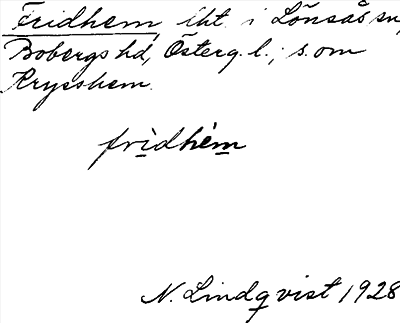 Fridhem, lht. i Lönsås sn,
Bobergs hd, Österg. l.; s. om
Krysshem.
fridhèm
N. Lindqvist 1928